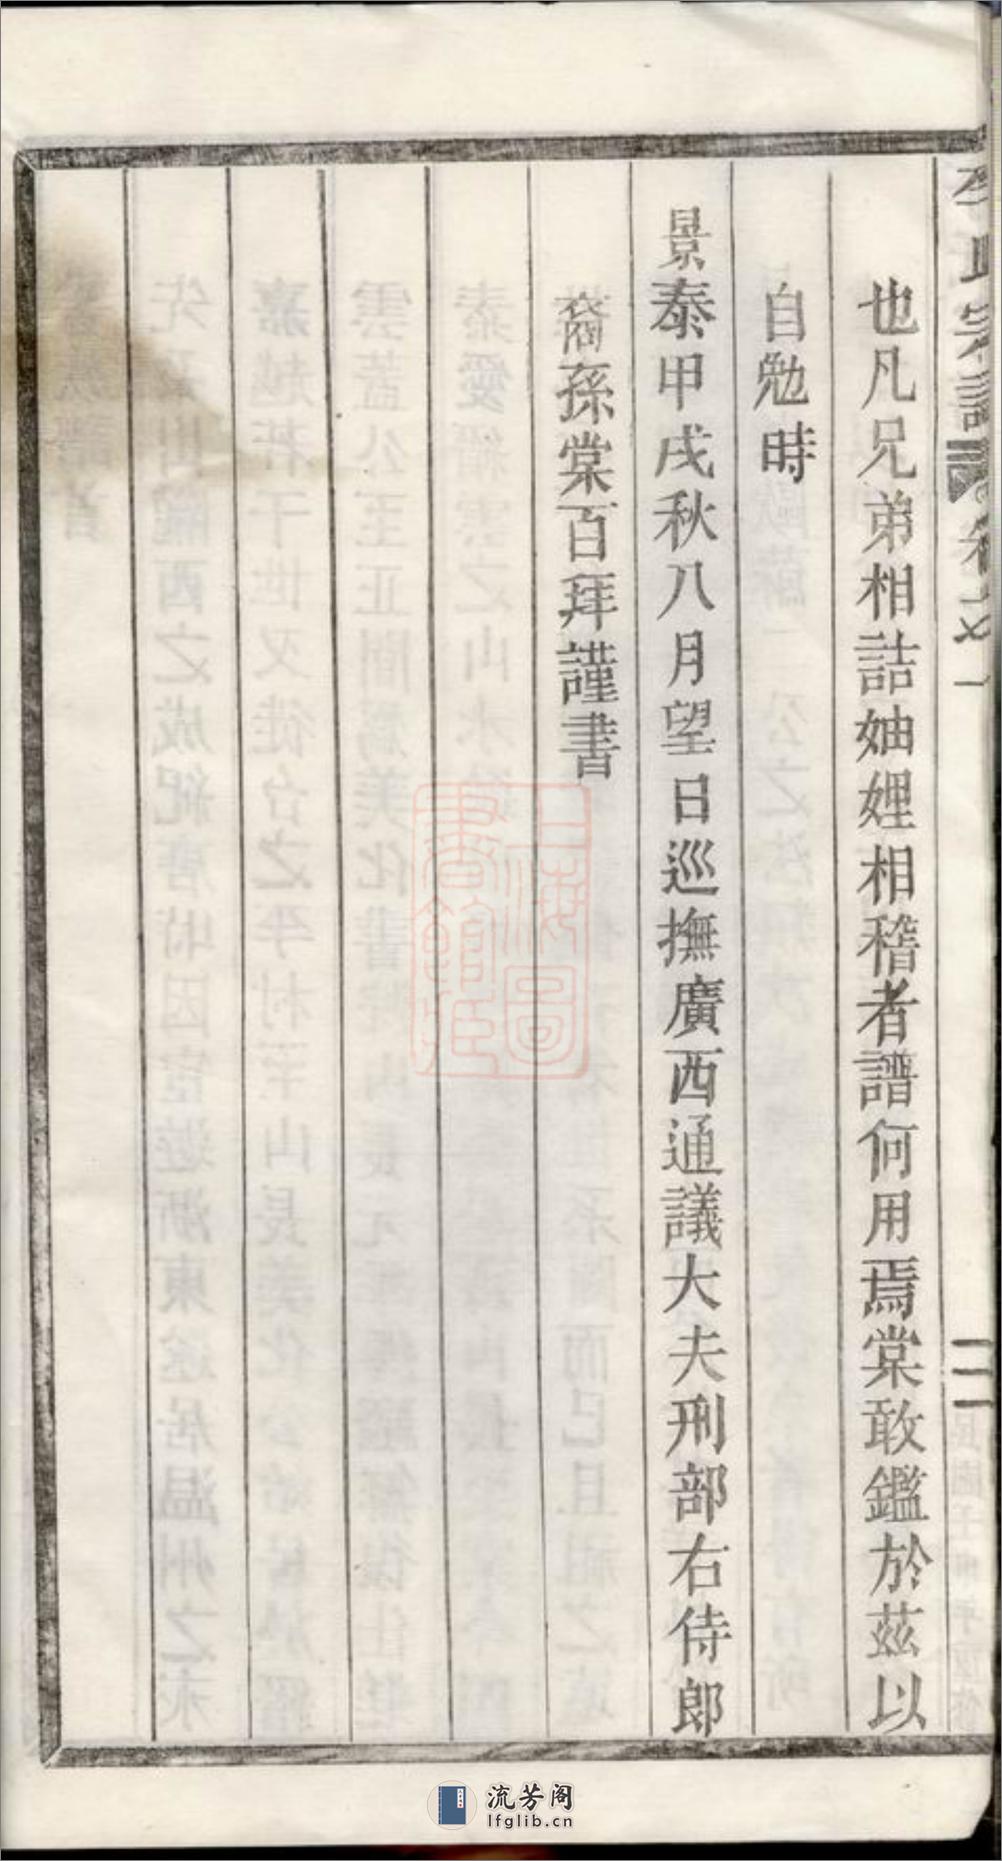 也凡兄弟相詰妯娌相稽者譜何用焉棠敢鑑於茲以
自勉時
景泰甲戌秋八月望日巡撫廣西通議大夫刑部右侍郎
裔孫棠百拜謹書
上海圖書館藏
流芳阁
lfglib.cn